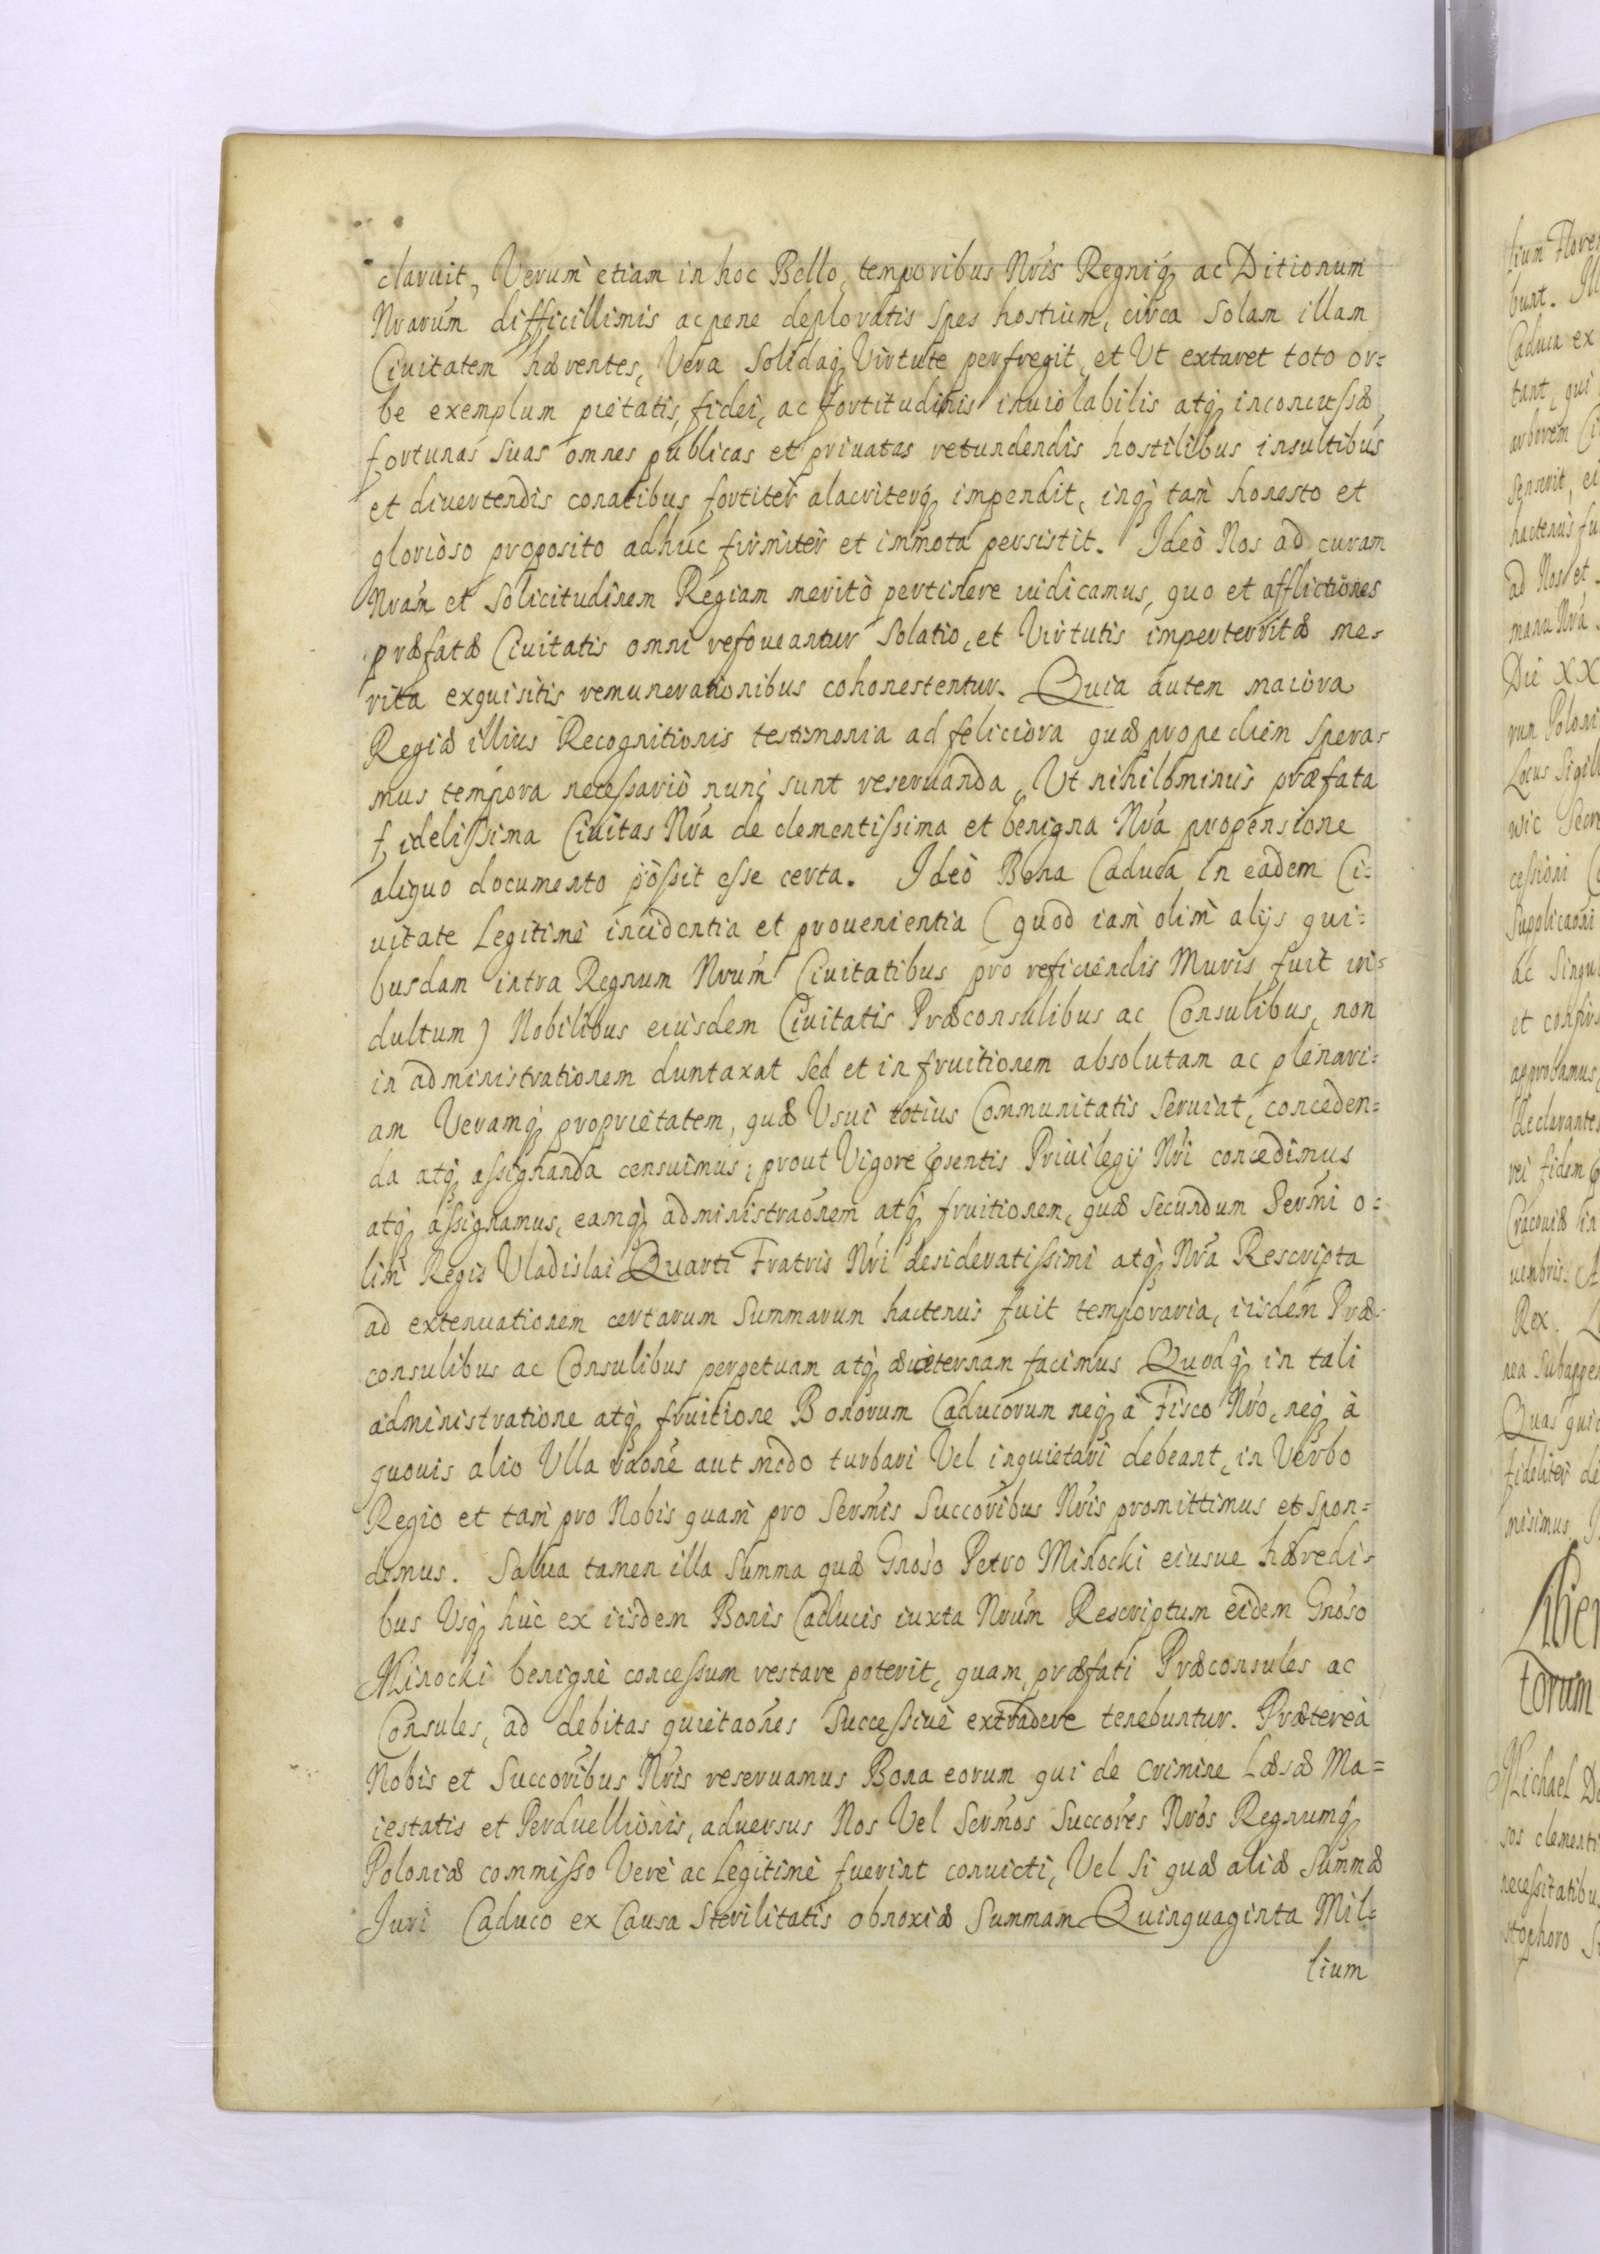 claruit, Verum etiam in hoc Bello, temporibus Nris Regniq; ac Ditionum
Nrarum difficillimis ac pene deploratis spes hostium, circa solam illam
Ciuitatem hærentes, Vera solidaq; Virtute perfregit, et Ut extaret toto or-
be exemplum pietatis, fidei, ac fortitudinis inuiolabilis atq; inconcussæ
fortunas suas omnes publicas et priuatas retundendis hostilibus insultibus
et diuertendis conatibus fortiter alacriterq; impendit, inq; tam honesto et
glorioso proposito adhuc firmiter et immota persistit. Ideò Nos ad curam
Nram et solicitudinem Regiam meritò pertinere iudicamus, quo et afflictiones
præfatæ Ciuitatis omni refoueantur solatio, et Virtutis imperterritæ me-
rita exquisitis remunerationibus cohonestentur. Quia autem maiora
Regiæ illius Recognitionis testimonia ad feliciora quæ propediem spera-
mus tempora necessariò nunc sunt reseruanda, Ut nihilominus præfata
fidelissima Ciuitas Nra de clementissima et benigna Nra propensione
aliquo documento possit esse certa. Ideò Bona Caduca in eadem Ci-
uitate Legitimè incidentia et prouenientia (quod iam olim alijs qui-
busdam intra Regnum Nrum Ciuitatibus pro reficiendis Muris fuit in-
dultum) Nobilibus eiusdem Ciuitatis Præconsulibus ac Consulibus, non
in administrationem duntaxat sed et in fruitionem absolutam ac plenari-
am Veramq; proprietatem, quæ Usui totius Communitatis seruiat, conceden-
da atq; assignanda censuimus; prout Vigore psentis Priuilegij Nri concedimus
atq; assignamus, eamq; administraonem atq; fruitionem, quæ secundum Sermi o-
lim Regis Vladislai Quarti Fratris Nri desideratissimi atq; Nra Rescripta
ad extenuationem certarum summarum hactenus fuit temporaria, iisdem Præ-
consulibus ac Consulibus perpetuam atq; æuiternam facimus Quodq; in tali
administratione atq; fruitione Bonorum Caducorum neq; à Fisco Nro, neq; à
quouis alio Ulla raone aut modo turbari Vel inquietari debeant, in Verbo
Regio et tam pro Nobis quam pro Sermis Succoribus Nris promittimus et spon-
demus. Salua tamen illa summa quæ Gnoso Petro Minocki eiusue hæredi-
bus Usq; huc ex iisdem Bonis Caducis iuxta Nrum Rescriptum eidem Gnoso
Minocki benignè concessum restare poterit, quam præfati Præconsules ac
Consules, ad debitas quietaones successiuè extradere tenebuntur. Prætereà
Nobis et Succoribus Nris reseruamus Bona eorum qui de crimine Læsæ Ma-
iestatis et Perduellionis, aduersus Nos Vel Sermos Succores Nros Regnumq;
Poloniæ commisso Verè ac Legitimè fuerint conuicti, Vel si quæ aliæ summæ
Juri Caduco ex Causa sterilitatis obnoxiæ summam Quinquaginta Mil-
lium